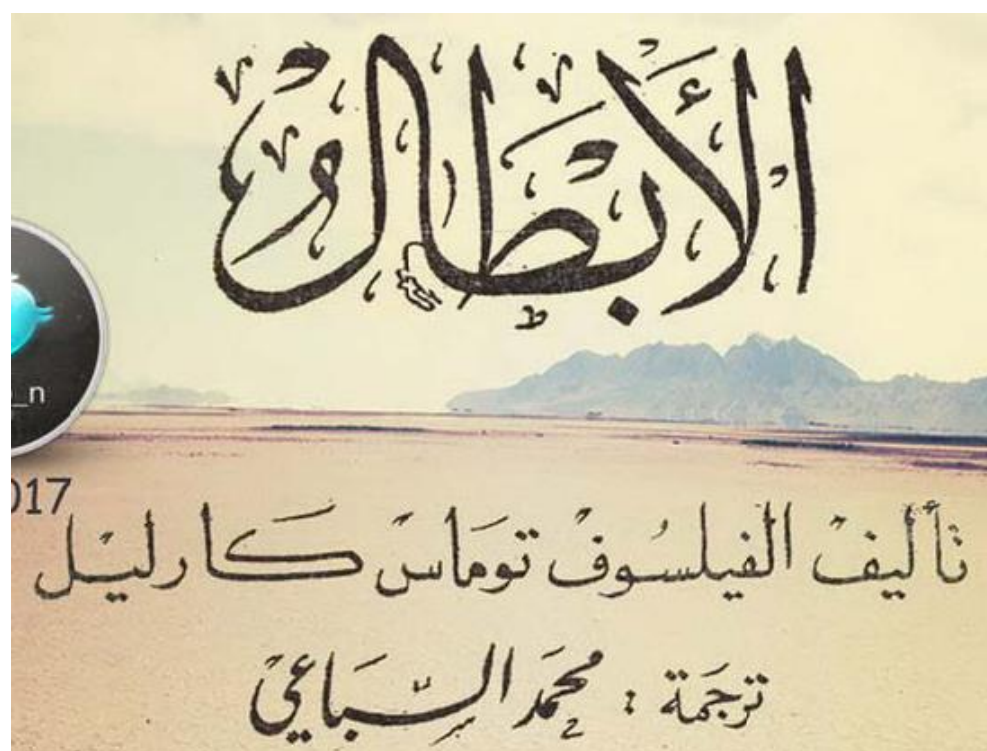 الأبطال
_n
017
تأليف الفيلسوف توماس كارليل
ترجمة : محمد السباعي